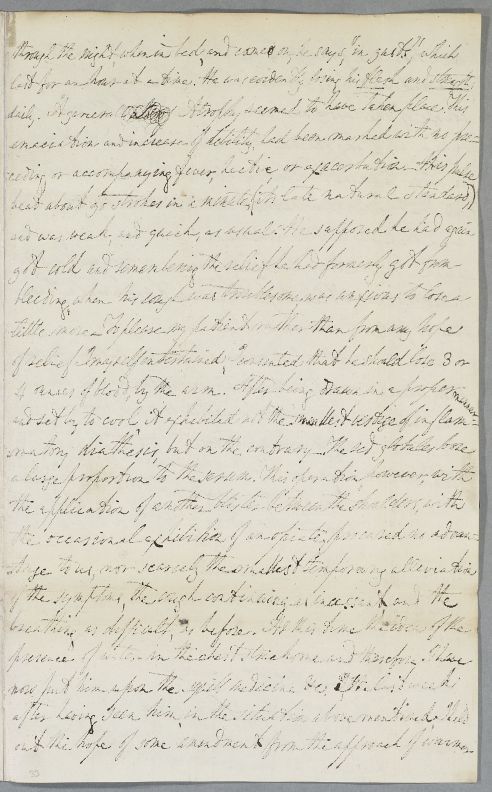 through the night when in bed, and came on, he says, "in gusts", which
last for an hour at a time. He was evidently losing his flesh and strength
daily. A general Atrophy seemed to have taken place. This
emaciation and increase of debility, had been marked with no pre-
ceding or accompanying fever, hectic or exacerbation. His pulse
beat about 90 strokes in a minute (its late natural standard)
and was weak, and quick, as usual. He supposed he had again
got cold and remembering the relief he had formerly got from
bleeding, when his cough was troublesome, was anxious to lose a
little more. To please my patient rather than from any hope
of relief I myself entertained, I consented that he should lose 3 or
4 ounces of blood, by the arm. After being drawn in a proper manner
and set by to cool, it exhibited not the smallest vestige of inflam-
matory diathesis, but on the contrary. The red globules bore
a large proportion to the serum. This operation however, with
the application of another blister between the shoulders, with
the occasional exhibition of an opiate, procured no advan-
tage to us, nor scarcely the smallest temporary alleviation
of the symptoms, the cough continuing as incessant and the
breathing as difficult, as before. At this time the idea of the
presence of water in the chest struck me and therefore I have
now put him upon the medicine the last week
after having seen him in the situation above mentioned. I held
out the hope of some amendment from the approach of warmer
33